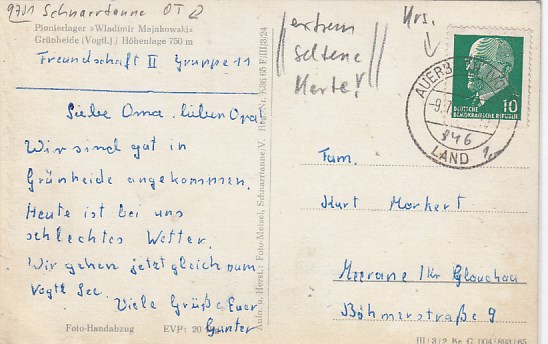 9701 Schnarrtanne OT 2
Pionierlager »Wladimir Majakowski«
Grünheide (Vogtl.) / Höhenlage 750 m
Freundschaft II Gruppe 11
Liebe Oma, lieber Opa!
Wir sind gut in
Grünheide angekommen.
Heute ist bei uns
schlechtes Wetter.
Wir gehen jetzt gleich zum
Vogtl See.
Viele Grüße Euer
Gunter
Foto-Handabzug EVP: 20
Aufn. u. Herst.: Foto-Meinel, Schnarrtanne/V.
extrem
seltene
Karte!
Krs.
AUERB
9.7
846
LAND
DEUTSCHE
DEMOKRATISCHE REPUBLIK
10
Fam.
Kurt Markert
Meerane Kr Glauchau
Böhmerstraße 9
III / 3 / 2 Kr. G 004/893/65